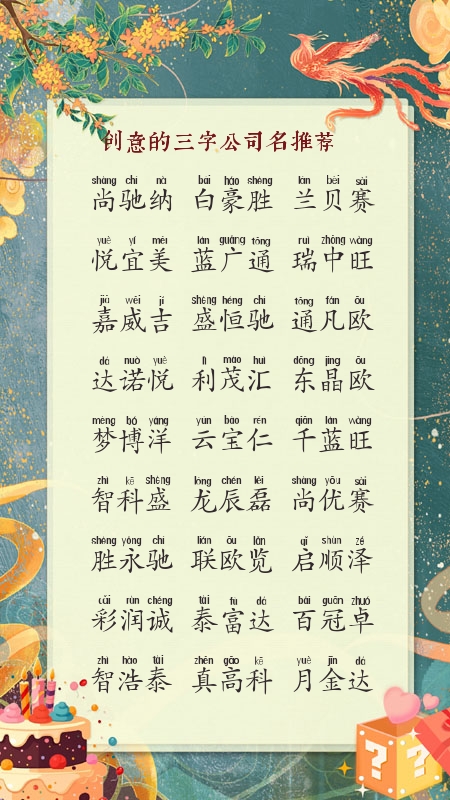 创意的三字公司名推荐
shàng chí nà bái háo shèng lán bèi sài
尚驰纳 白豪胜 兰贝赛
yuè yí měi lán guǎng tōng ruì zhōng wàng
悦宜美 蓝广通 瑞中旺
jiā wēi jí shèng héng chí tōng fán ōu
嘉威吉 盛恒驰 通凡欧
dá nuò yuè lì mào huì dōng jīng ōu
达诺悦 利茂汇 东晶欧
mèng bó yáng yún bǎo rén qiān lán wàng
梦博洋 云宝仁 千蓝旺
zhì kē shèng lóng chén lěi shàng yōu sài
智科盛 龙辰磊 尚优赛
shèng yǒng chí lián ōu lǎn qǐ shùn zé
胜永驰 联欧览 启顺泽
cǎi rùn chéng tài fù dá bǎi guān zhuó
彩润诚 泰富达 百冠卓
zhì hào tài zhēn gāo kē yuè jīn dá
智浩泰 真高科 月金达
? ?